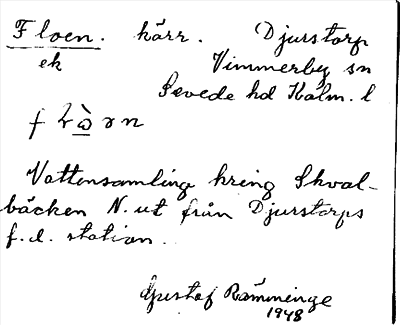 Floen. kärr. Djurstorp
ek Vimmerby sn
Sevede hd Kalm. l
Vattensamling kring Skval-
bäcken N. ut från Djurstorps
f.d. station.
Gustaf Rämminge
1948